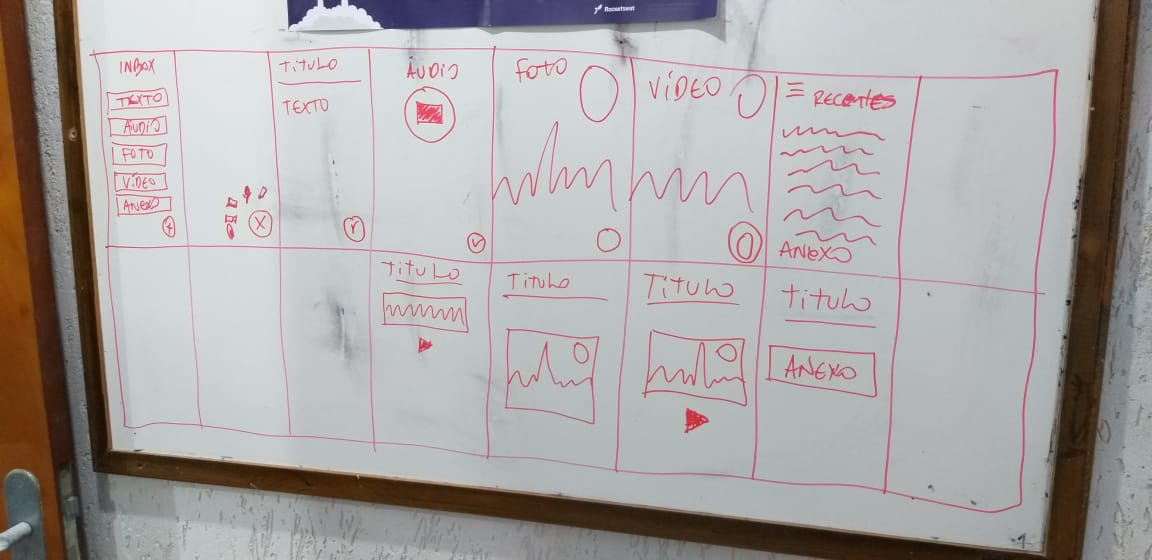 Rocketseat
INBOX
TEXTO
ÁUDIO
FOTO
VÍDEO
ANEXO
+
X
TITULO
TEXTO
ÁUDIO
FOTO
VÍDEO
RECENTES
ANEXO
TITULO
TITULO
TITULO
TITULO
ANEXO